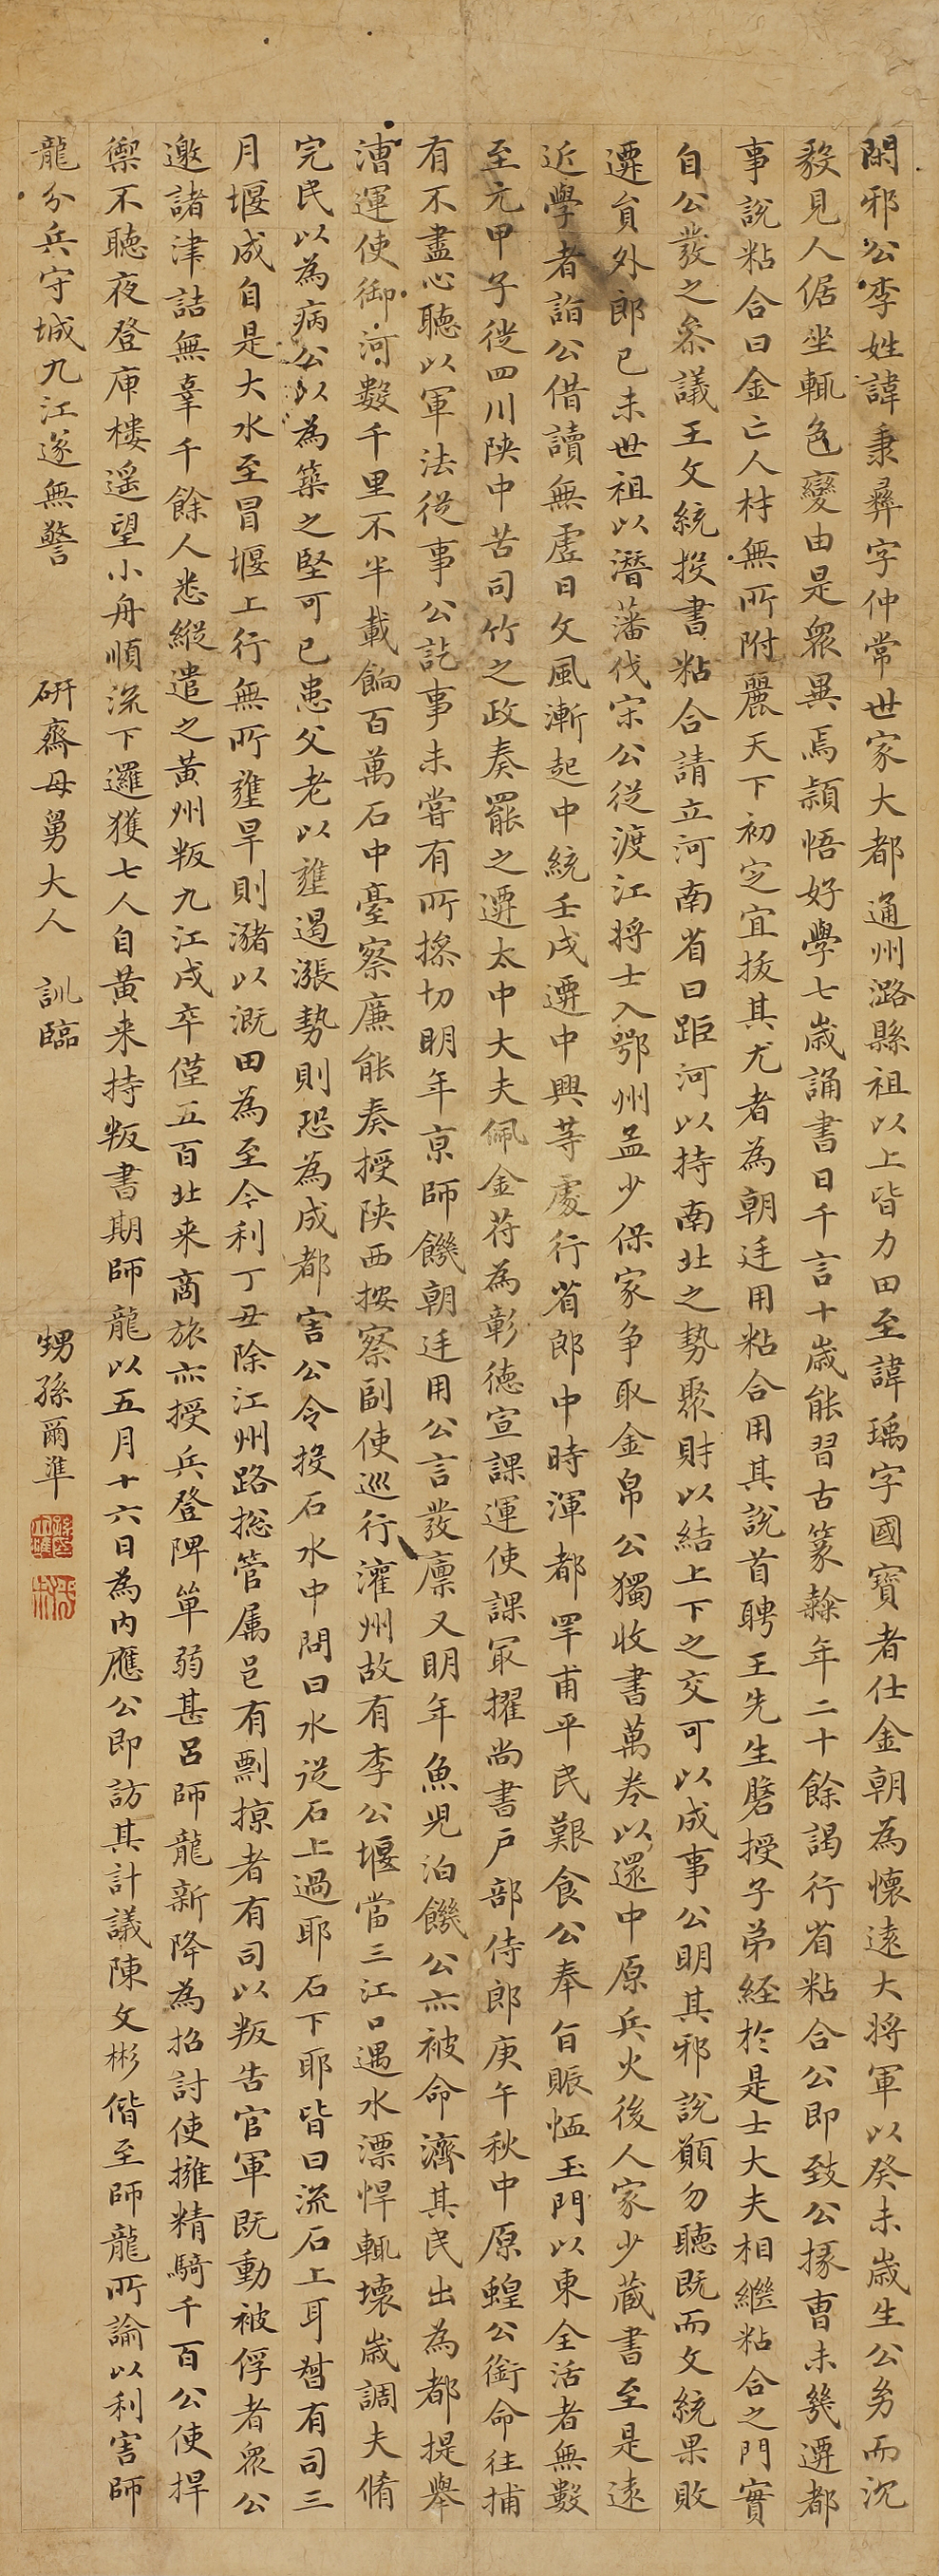 閑邪公李姓諱秉彝字仲常世家大都通州潞縣祖以上皆力田至諱瑀字國寶者仕金朝為懷遠大將軍以癸未歲生公㓜而沉
毅見人倨坐輒色變由是衆異焉頴悟好學七歲誦書日千言十歲能習古篆隸年二十餘謁行省粘合公即致公掾曹未幾遷都
事說粘合曰金亡人材無所附麗天下初定宜拔其尤者為朝廷用粘合用其說首聘王先生磐授子弟經於是士大夫相繼粘合之門實
自公發之叅議王文統投書粘合請立河南省曰距河以持南北之勢聚財以結上下之交可以成事公明其邪說願勿聽既而文統果敗
遷負外郎已未世祖以潛藩伐宋公從渡江將士入鄂州孟少保家爭取金帛公獨收書萬卷以還中原兵火後人家少藏書至是遠
近學者詣公借讀無虛日文風漸起中統壬戌遷中興等處行省郎中時渾都罕甫平民艱食公奉旨賑恤玉門以東全活者無數
至元甲子徙四川陝中苦司竹之政奏罷之遷太中大夫佩金苻為彰德宣課運使課冣擢尚書戶部侍郎庚午秋中原蝗公銜命往捕
有不盡心聽以軍法從事公訖事未嘗有所㨾切明年京師饑朝廷用公言發廪又明年魚兒泊饑公亦被命濟其民出為都提舉
漕運使御河數千里不半載餉百萬石中臺察廉能奏授陝西按察副使巡行灌州故有李公堰當三江口遇水漂悍輒壞歲調夫脩
完民以為病公以為築之堅可已患父老以壅遏漲勢則恐為成都害公令投石水中問曰水從石上過耶石下耶皆曰流石上耳督有司三
月堰成自是大水至冒堰上行無所壅旱則瀦以溉田為至今利丁丑除江州路総管属邑有剽掠者有司以叛告官軍既動被俘者衆公
邀諸津詰無辜千餘人悉縱遣之黃州叛九江戍卒僅五百北来商旅亦授兵登陴單弱甚呂師龍新降為招討使擁精騎千百公使捍
禦不聽夜登庾樓遥望小舟順流下邏獲七人自黃来持叛書期師龍以五月十六日為內應公即訪其計議陳文彬偕至師龍所諭以利害師
龍分兵守城九江遂無警
研齋母舅大人 訓臨
甥孫爾準